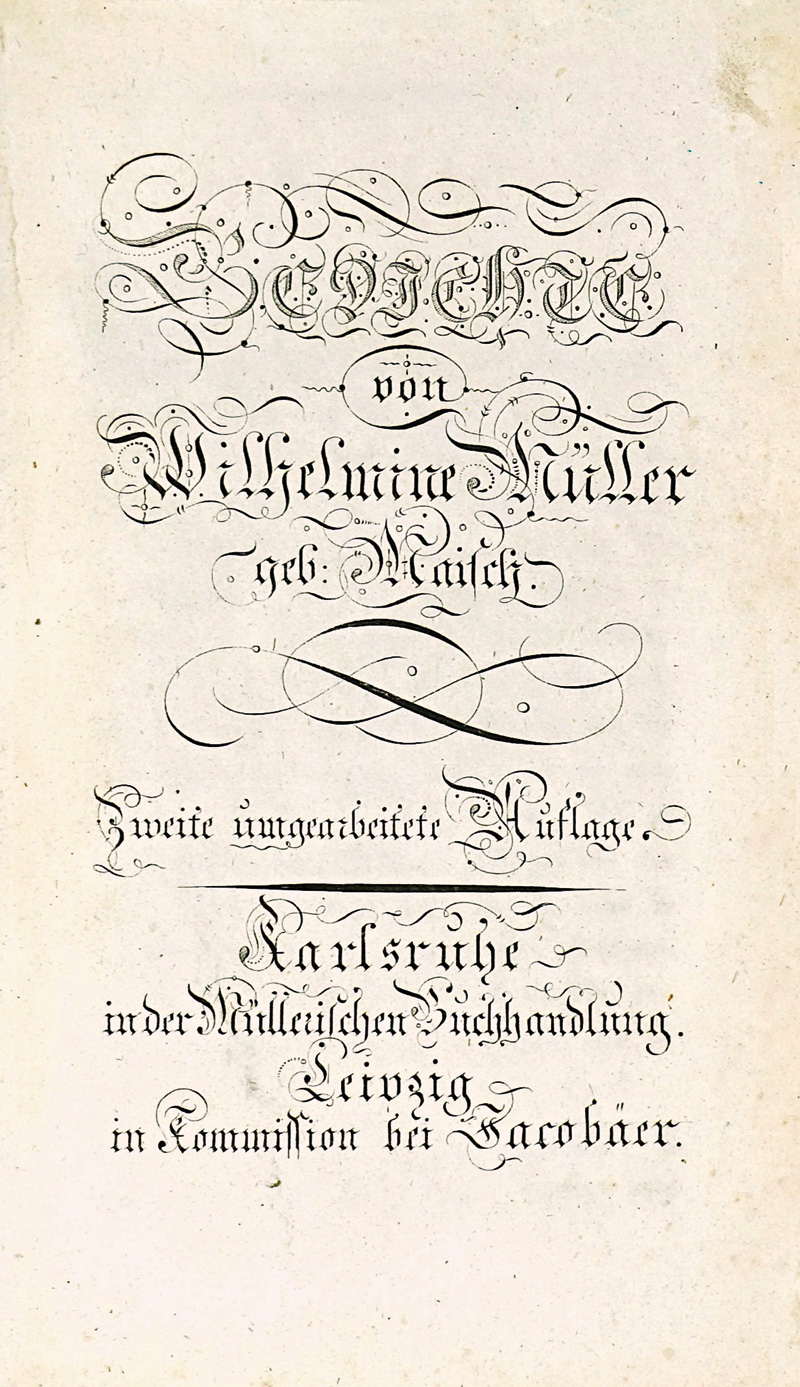 Gedichte
von
Wilhelmine Müller
geb: Maisch.
Zweite umgearbeitete Auflage.
Karlsruhe
in der Müllerischen Buchhandlung.
Leipzig
in Kommission bei Jacobäer.